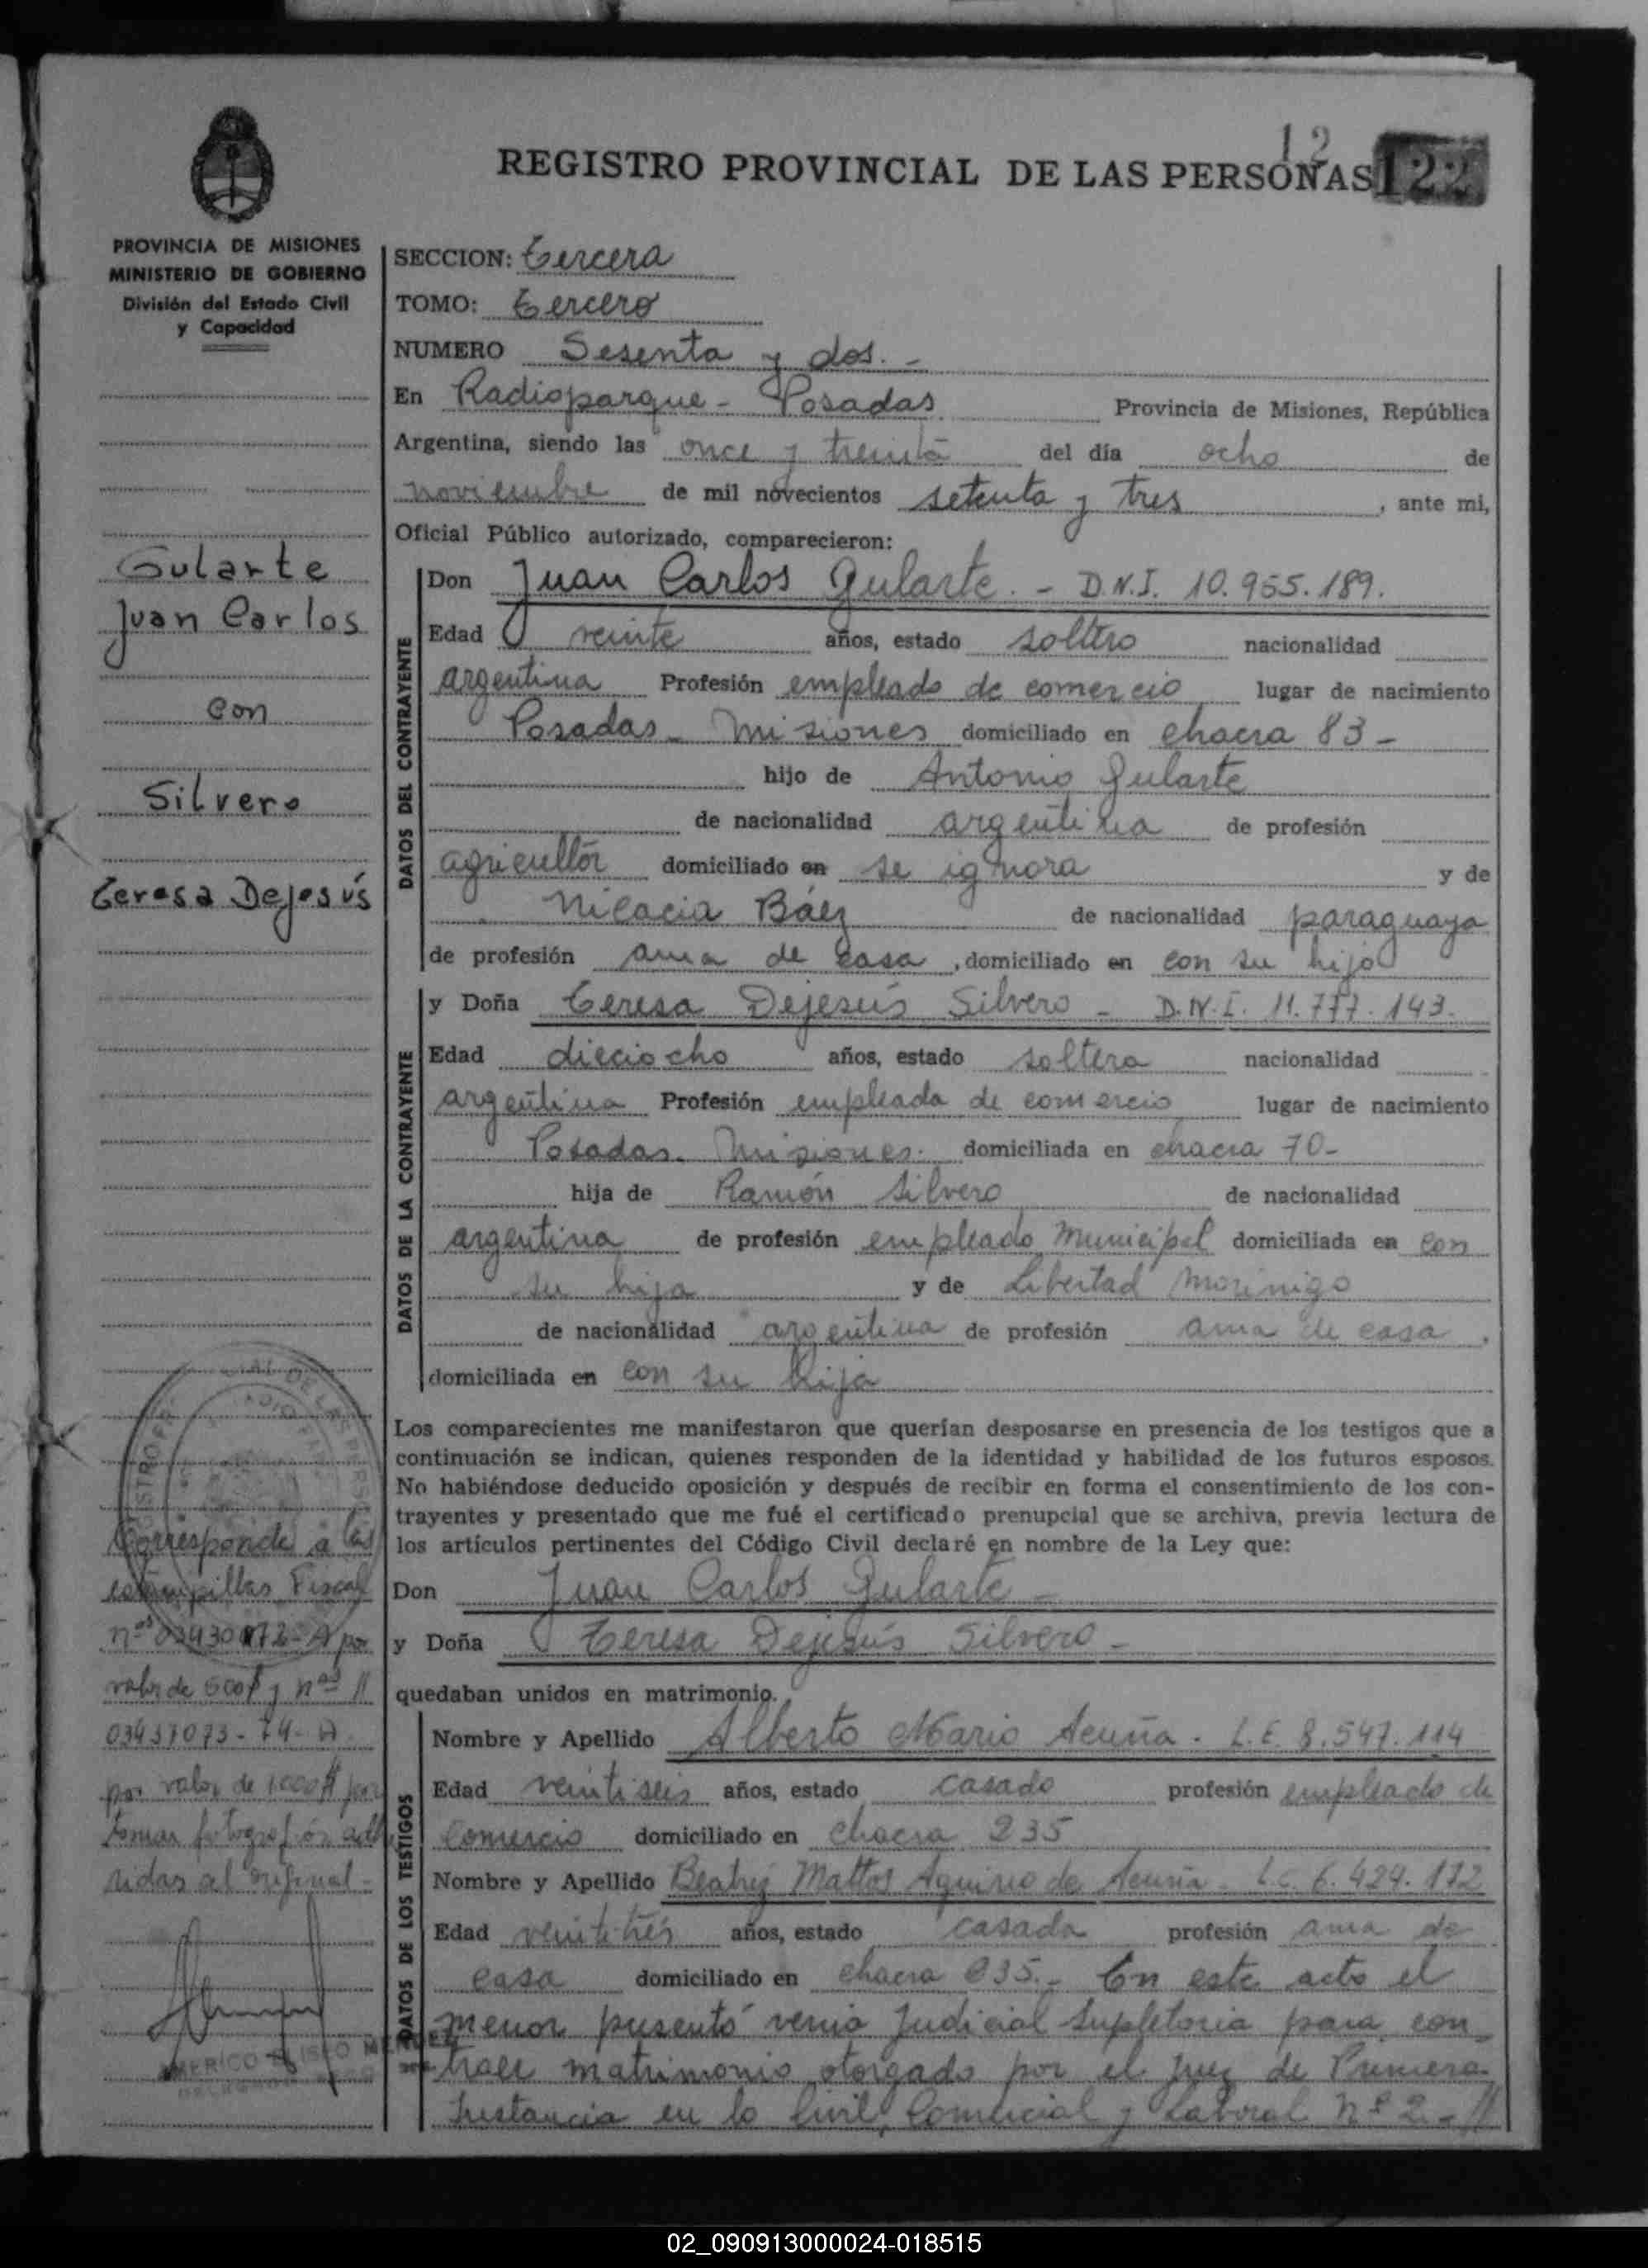 12
REGISTRO PROVINCIAL DE LAS PERSONAS 122
PROVINCIA DE MISIONES
MINISTERIO DE GOBIERNO
División del Estado Civil
y Capacidad
Gularte
Juan Carlos
con
Silvero
Teresa Dejesús
Corresponde a las
estampillas Fiscal
por
valor de 500 y nos //
por valor de 1.000 por
tomar fotografías adhe
ridas al original -
AMERICO ELISEO MENDEZ
SECCION: tercera
TOMO: tercero
NUMERO Sesenta y dos. -
En Radioparque - Posadas Provincia de Misiones, República
Argentina, siendo las once y treinta del día ocho de
noviembre de mil novecientos setenta y tres, ante mi,
Oficial Público autorizado, comparecieron:
DATOS DEL CONTRAYENTE
Don Juan Carlos Gularte. - D.N.I. 10.955.189.
Edad veinte años, estado soltero nacionalidad
argentina Profesión empleado de comercio lugar de nacimiento
Posadas - Misiones domiciliado en chacra 83 -
hijo de Antonio Gularte
de nacionalidad argentina de profesión
agricultor domiciliado en se ignora y de
Nicacia Báez de nacionalidad paraguaya
de profesión ama de casa, domiciliado en con su hijo
DATOS DE LA CONTRAYENTE
y Doña Teresa Dejesús Silvero - D.N.I. 11.777.143.
Edad dieciocho años, estado soltera nacionalidad
argentina Profesión empleada de comercio lugar de nacimiento
Posadas. Misiones. domiciliada en chacra 70 -
hija de Ramón Silvero de nacionalidad
argentina de profesión empleado Municipal domiciliada en con
su hija y de Libertad Morinigo
de nacionalidad argentina de profesión ama de casa,
domiciliada en con su hija
Los comparecientes me manifestaron que querían desposarse en presencia de los testigos que a
continuación se indican, quienes responden de la identidad y habilidad de los futuros esposos.
No habiéndose deducido oposición y después de recibir en forma el consentimiento de los con-
trayentes y presentado que me fué el certificado prenupcial que se archiva, previa lectura de
los artículos pertinentes del Código Civil declaré en nombre de la Ley que:
Don Juan Carlos Gularte -
y Doña Teresa Dejesús Silvero -
quedaban unidos en matrimonio.
DATOS DE LOS TESTIGOS
Nombre y Apellido Alberto Mario Acuña. L.E. 8.547.114
Edad veintiseis años, estado casado profesión empleado de
comercio domiciliado en chacra 235
Nombre y Apellido Beatriz Mattos Aquino de Acuña - L.C. 6.424.172
Edad veintitrés años, estado casada profesión ama de
casa domiciliado en chacra 235.- En este acto el
menor presentó venia Judicial Supletoria para con_
traer matrimonio otorgado por el Juez de Primera
Instancia en lo Civil, Comercial y Laboral Nº 2 - //
02_090913000024-018515